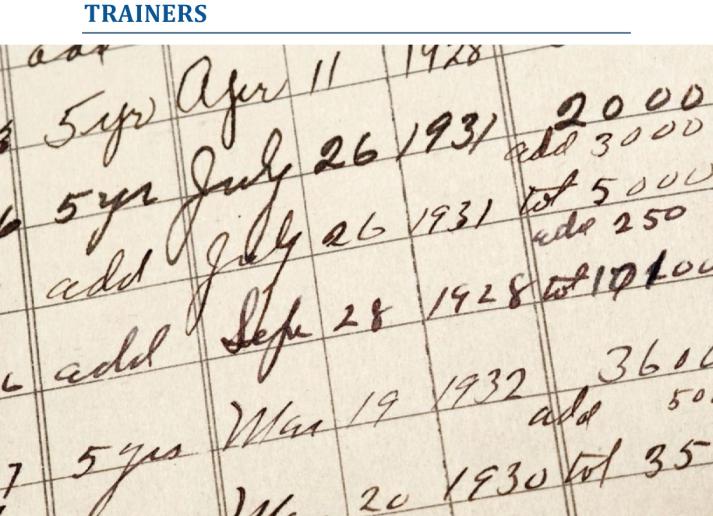 TRAINERS
add
11 1928
5 yr Apr
2000
5 yr July 26 1931 add 3000
add July 26 1931 tot 5000
add 250
add Sep 28 1928 tot
5 yrs Mar 19 1932 3600
add 50
20 1930 tot 35